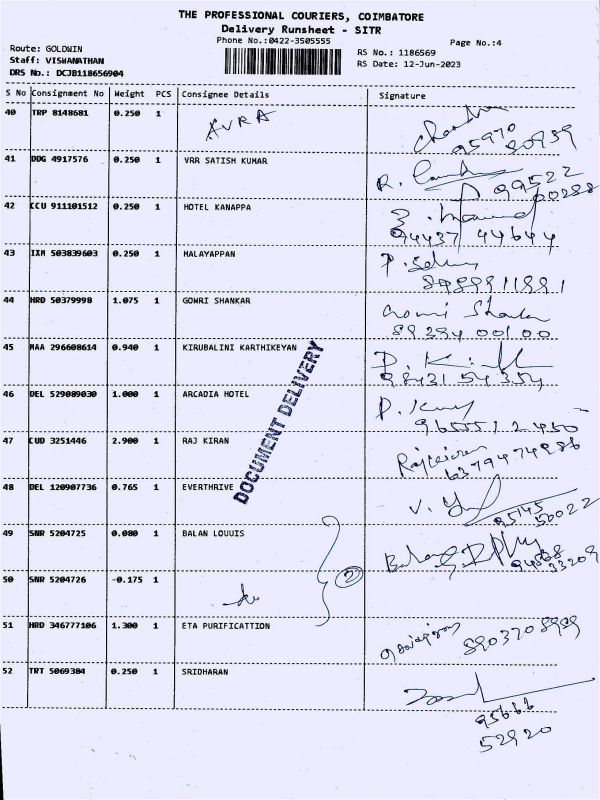 THE PROFESSIONAL COURIERS, COIMBATORE
Delivery Runsheet - SITR
Phone No.:0422-3505555
Page No.:4
Route: GOLDWIN
RS No.: 1186569
Staff: VISWANATHAN
RS Date: 12-Jun-2023
DRS No.: DCJB118656904
S No Consignment No Weight PCS Consignee Details Signature
40 TRP 8148681 0.250 1 AVRA
95970
80939
41 DDG 4917576 0.250 1 VRR SATISH KUMAR R.
99522
00288
42 CCU 911101512 0.250 1 HOTEL KANAPPA
94437 44644
43 IXM 503839603 0.250 1 MALAYAPPAN
8989911891
44 HRD 50379998 1.075 1 GOWRI SHANKAR Gowri Shankar
89394 00100
45 MAA 296608614 0.940 1 KIRUBALINI KARTHIKEYAN
98431 54354
46 DEL 529089030 1.000 1 ARCADIA HOTEL
965551 2450
47 CUD 3251446 2.900 1 RAJ KIRAN Rajkiran
6379474986
DOCUMENT DELIVERY
48 DEL 120907736 0.765 1 EVERTHRIVE V.
9545
50022
49 SNR 5204725 0.080 1 BALAN LOUUIS
33209
50 SNR 5204726 -0.175 1 do 2
51 HRD 346777106 1.300 1 ETA PURIFICATTION
8903708999
52 TRT 5069384 0.250 1 SRIDHARAN
95666
52920